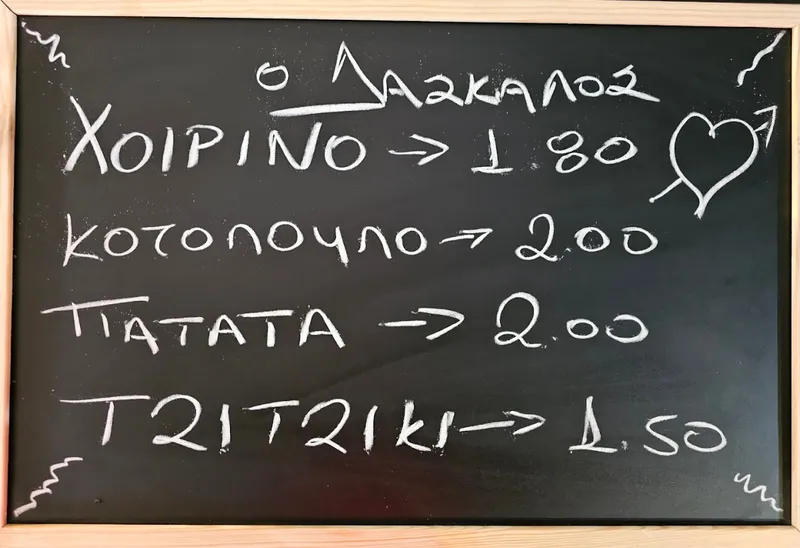 Ο ΔΑΣΚΑΛΟΣ
ΧΟΙΡΙΝΟ → 1 80
ΚΟΤΟΠΟΥΛΟ → 2.00
ΠΑΤΑΤΑ → 2.00
ΤΖΙΤΖΙΚΙ → 1.50